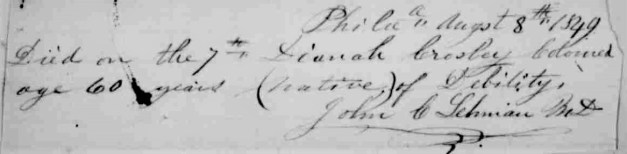 Philad<sup>a</sup> Augst 8th 1849
Died on the 7th Dianah Crosley Colored
age 60 years (native) of Debility,
John C Lehman MD